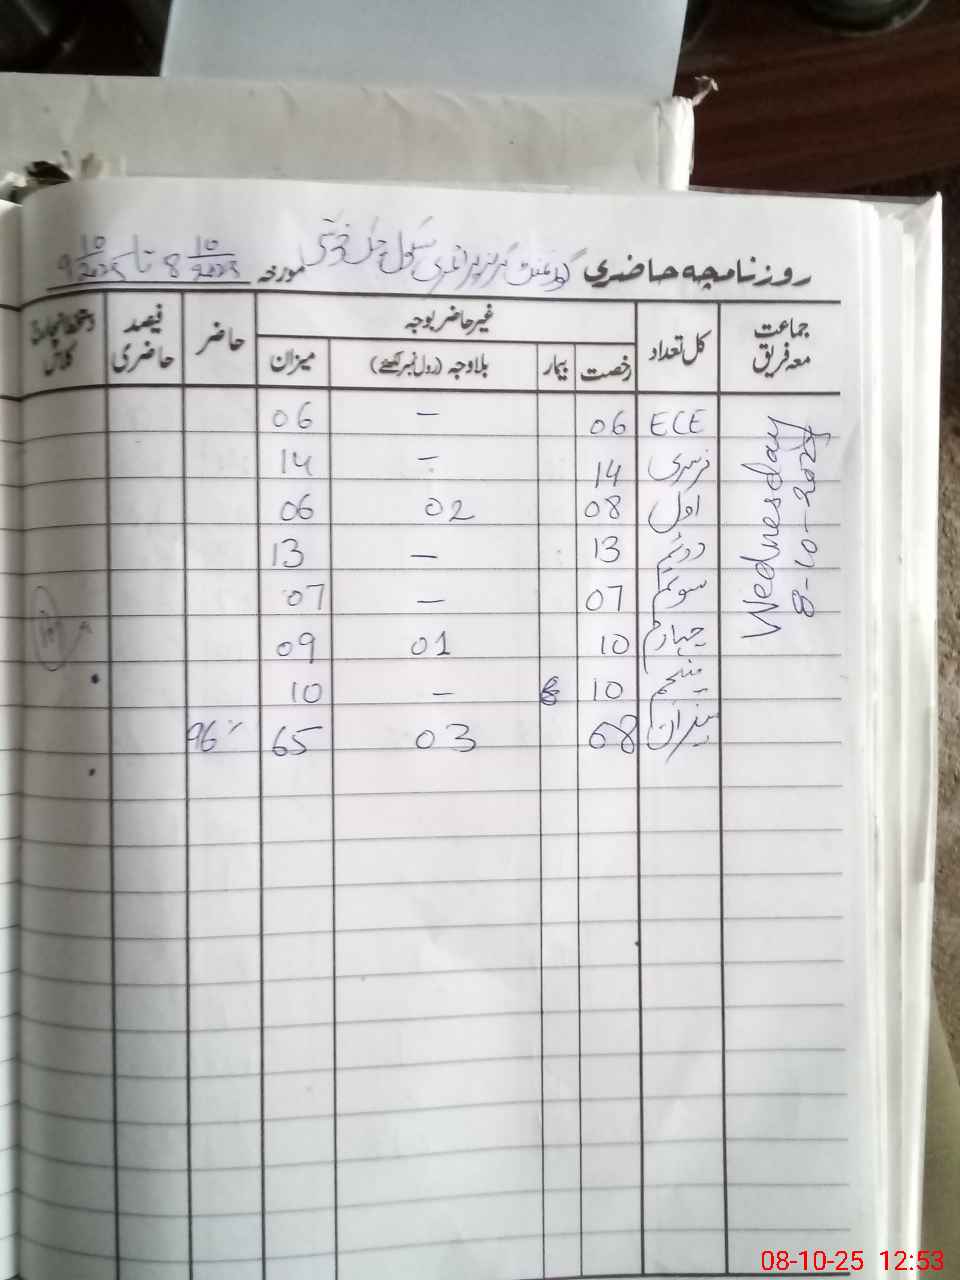 روزنامچہ حاضری گورنمنٹ گرلز پرائمری سکول چک مورخہ 8 10/2025 تا 9 10/2025
جماعت معہ فریق کل تعداد غیر حاضر بوجہ حاضر فیصد حاضری دستخط انچارج کلاس
رخصت بیمار بلاوجہ (رول نمبر لکھئے) میزان
Wednesday
8-10-2025
ECE 06 – 06
نرسری 14 – 14
اول 08 02 06
دوئم 13 – 13
سوئم 07 – 07
چہارم 10 01 09
پنجم 10 – 10
میزان 68 03 65 96%
08-10-25 12:53